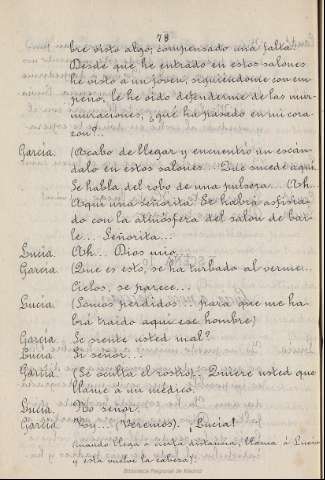 78
bre visto algo, compensado una falta.
Desde que he entrado en estos salones
he visto á un joven, siguiendome con em-
peño, le he oido defenderme de las mur-
muraciones, ¿que ha pasado en mi cora-
zon?
García. (Acabo de llegar y encuentro un escán-
dalo en estos salones... Que sucede aqui.
Se habla del robo de una pulsera... Ah...
Aqui una señorita! Se habrá asfixia-
do con la atmósfera del salon de bai-
le... Señorita...
Lucia. Ah... Dios mio.
García. (Que es esto, se ha turbado al verme.
Cielos, se parece...
Lucia. (Somos perdidos... para que me ha-
brá traido aqui ese hombre)
García. Se siente usted mal?
Lucia. Si señor...
García. (Se oculta el rostro). Quiere usted que
llame á un médico.
Lucia. No señor.
García. Voy... (Veremos). ¡Lucia!
(cuando llega á cierta distancia, llama á Lucia
y esta vuelve la cabeza).
Biblioteca Regional de Madrid